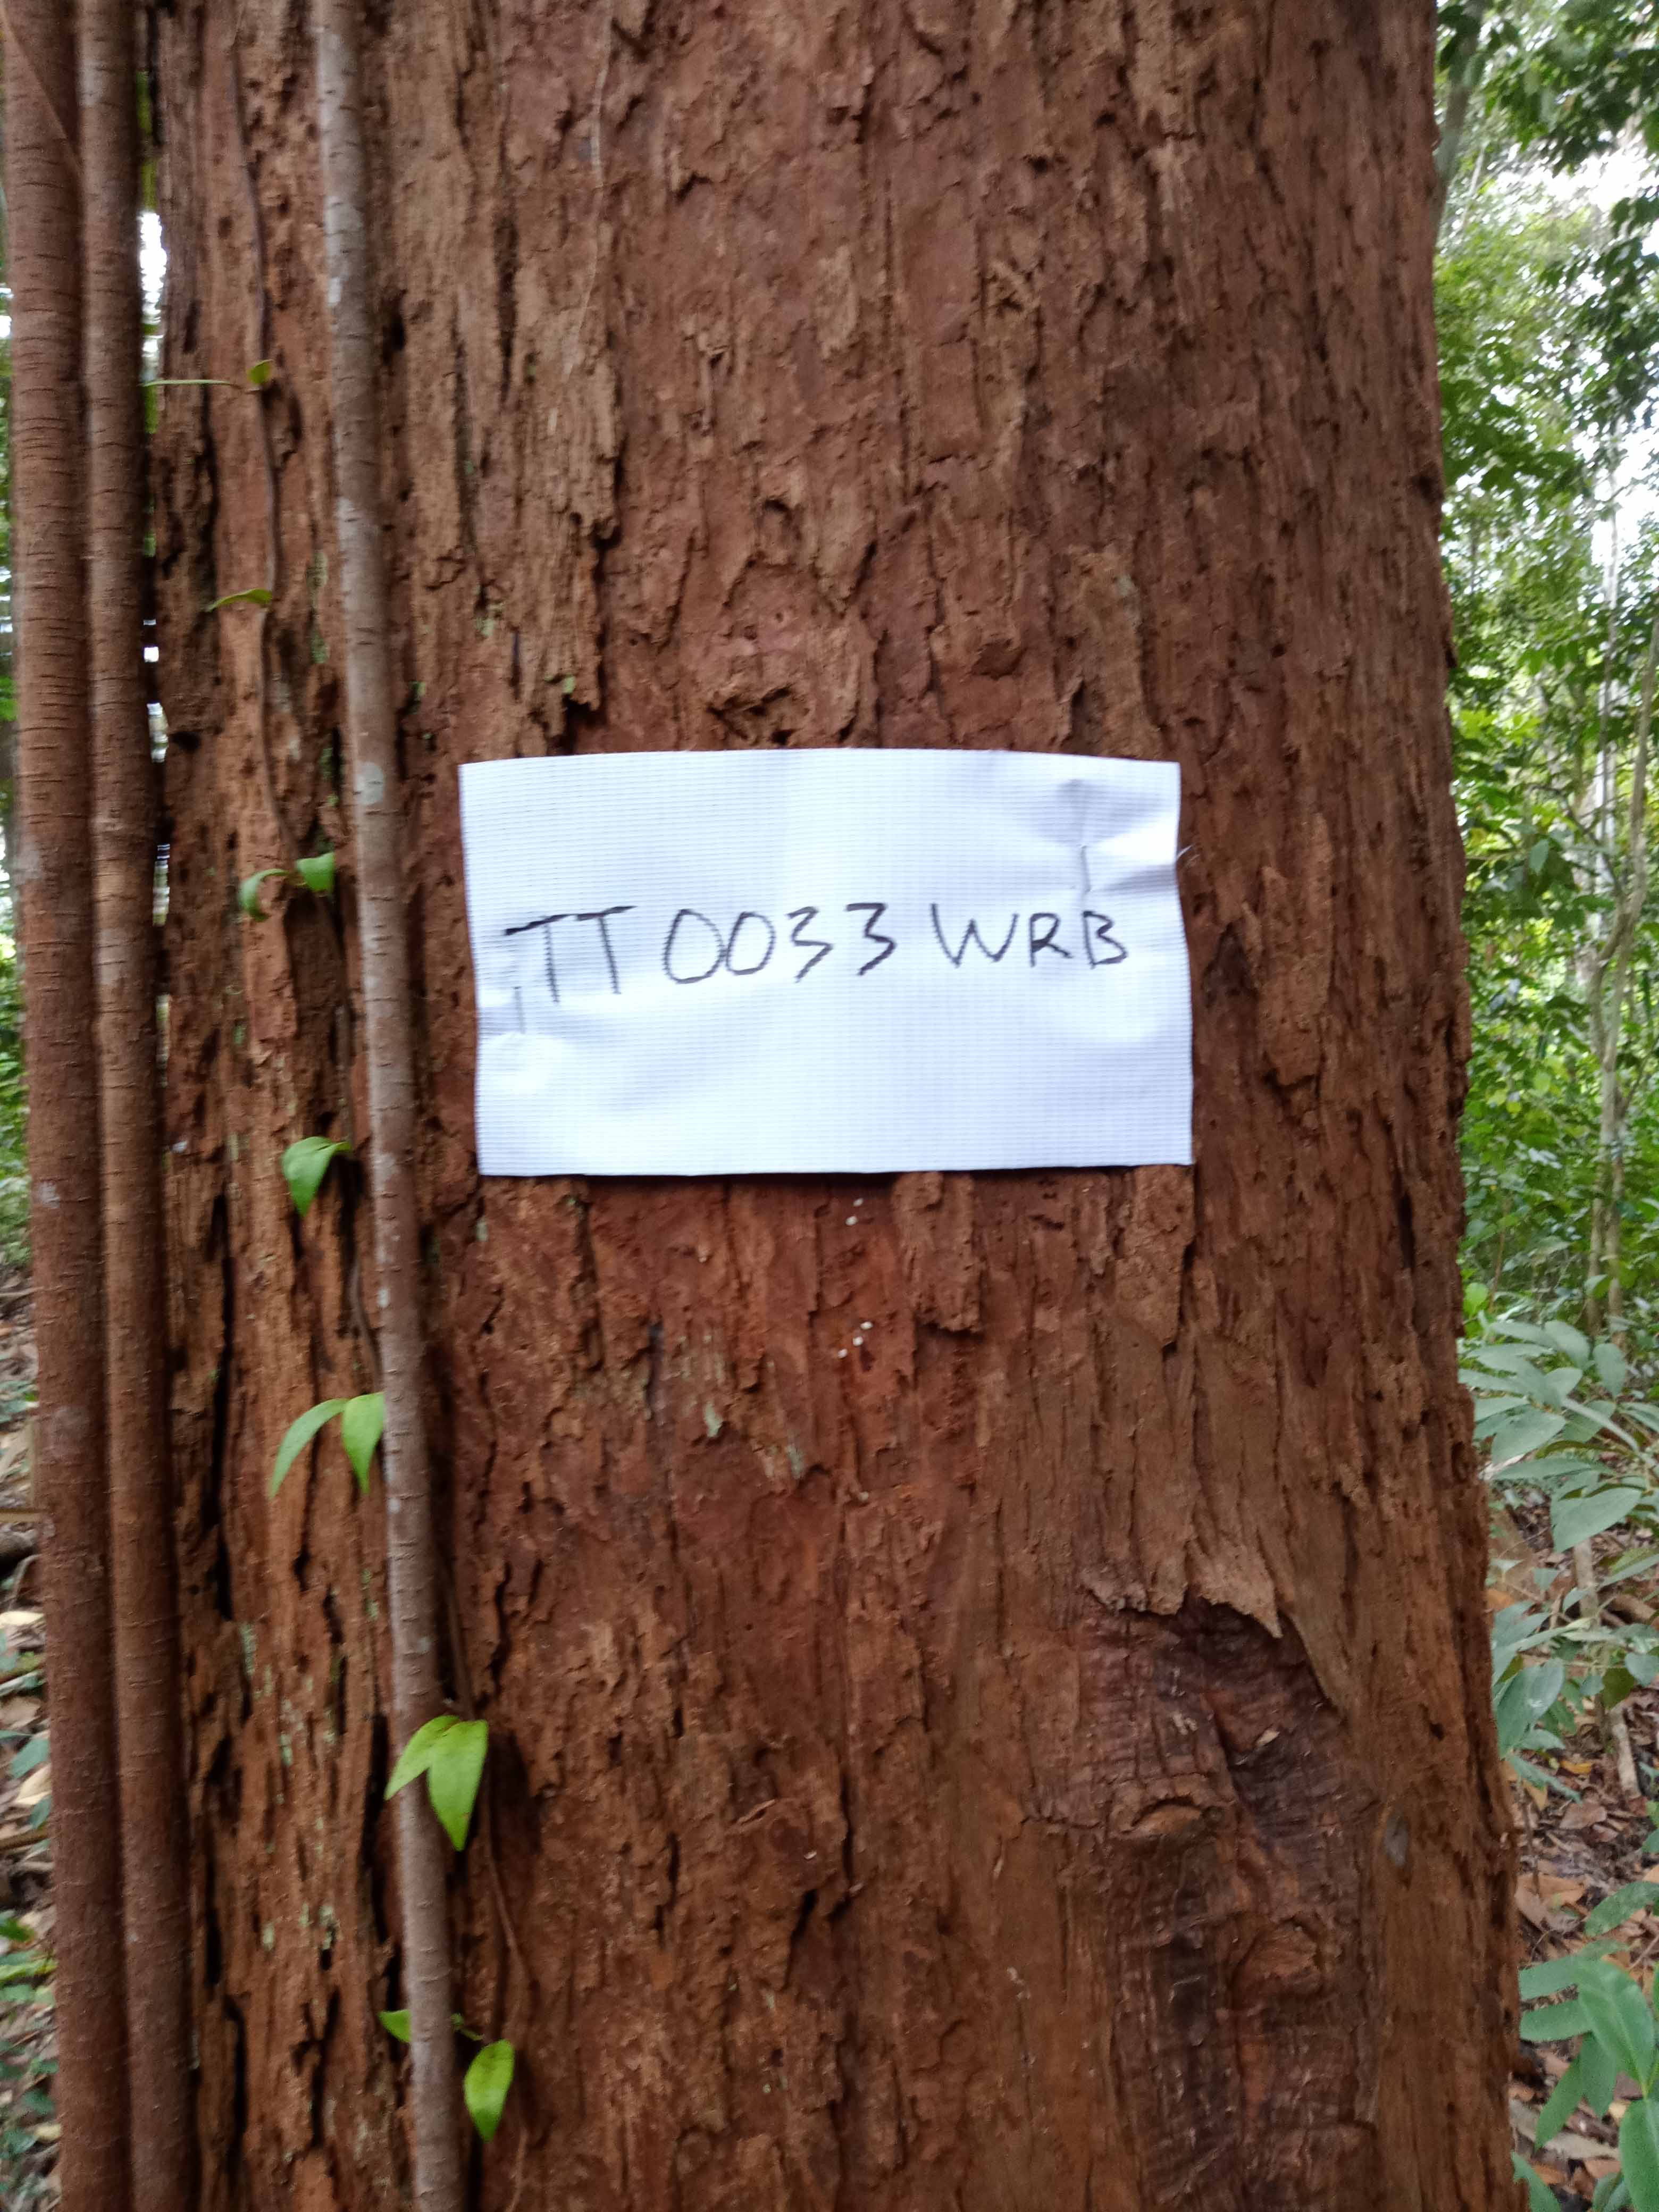 TT 0033 WRB